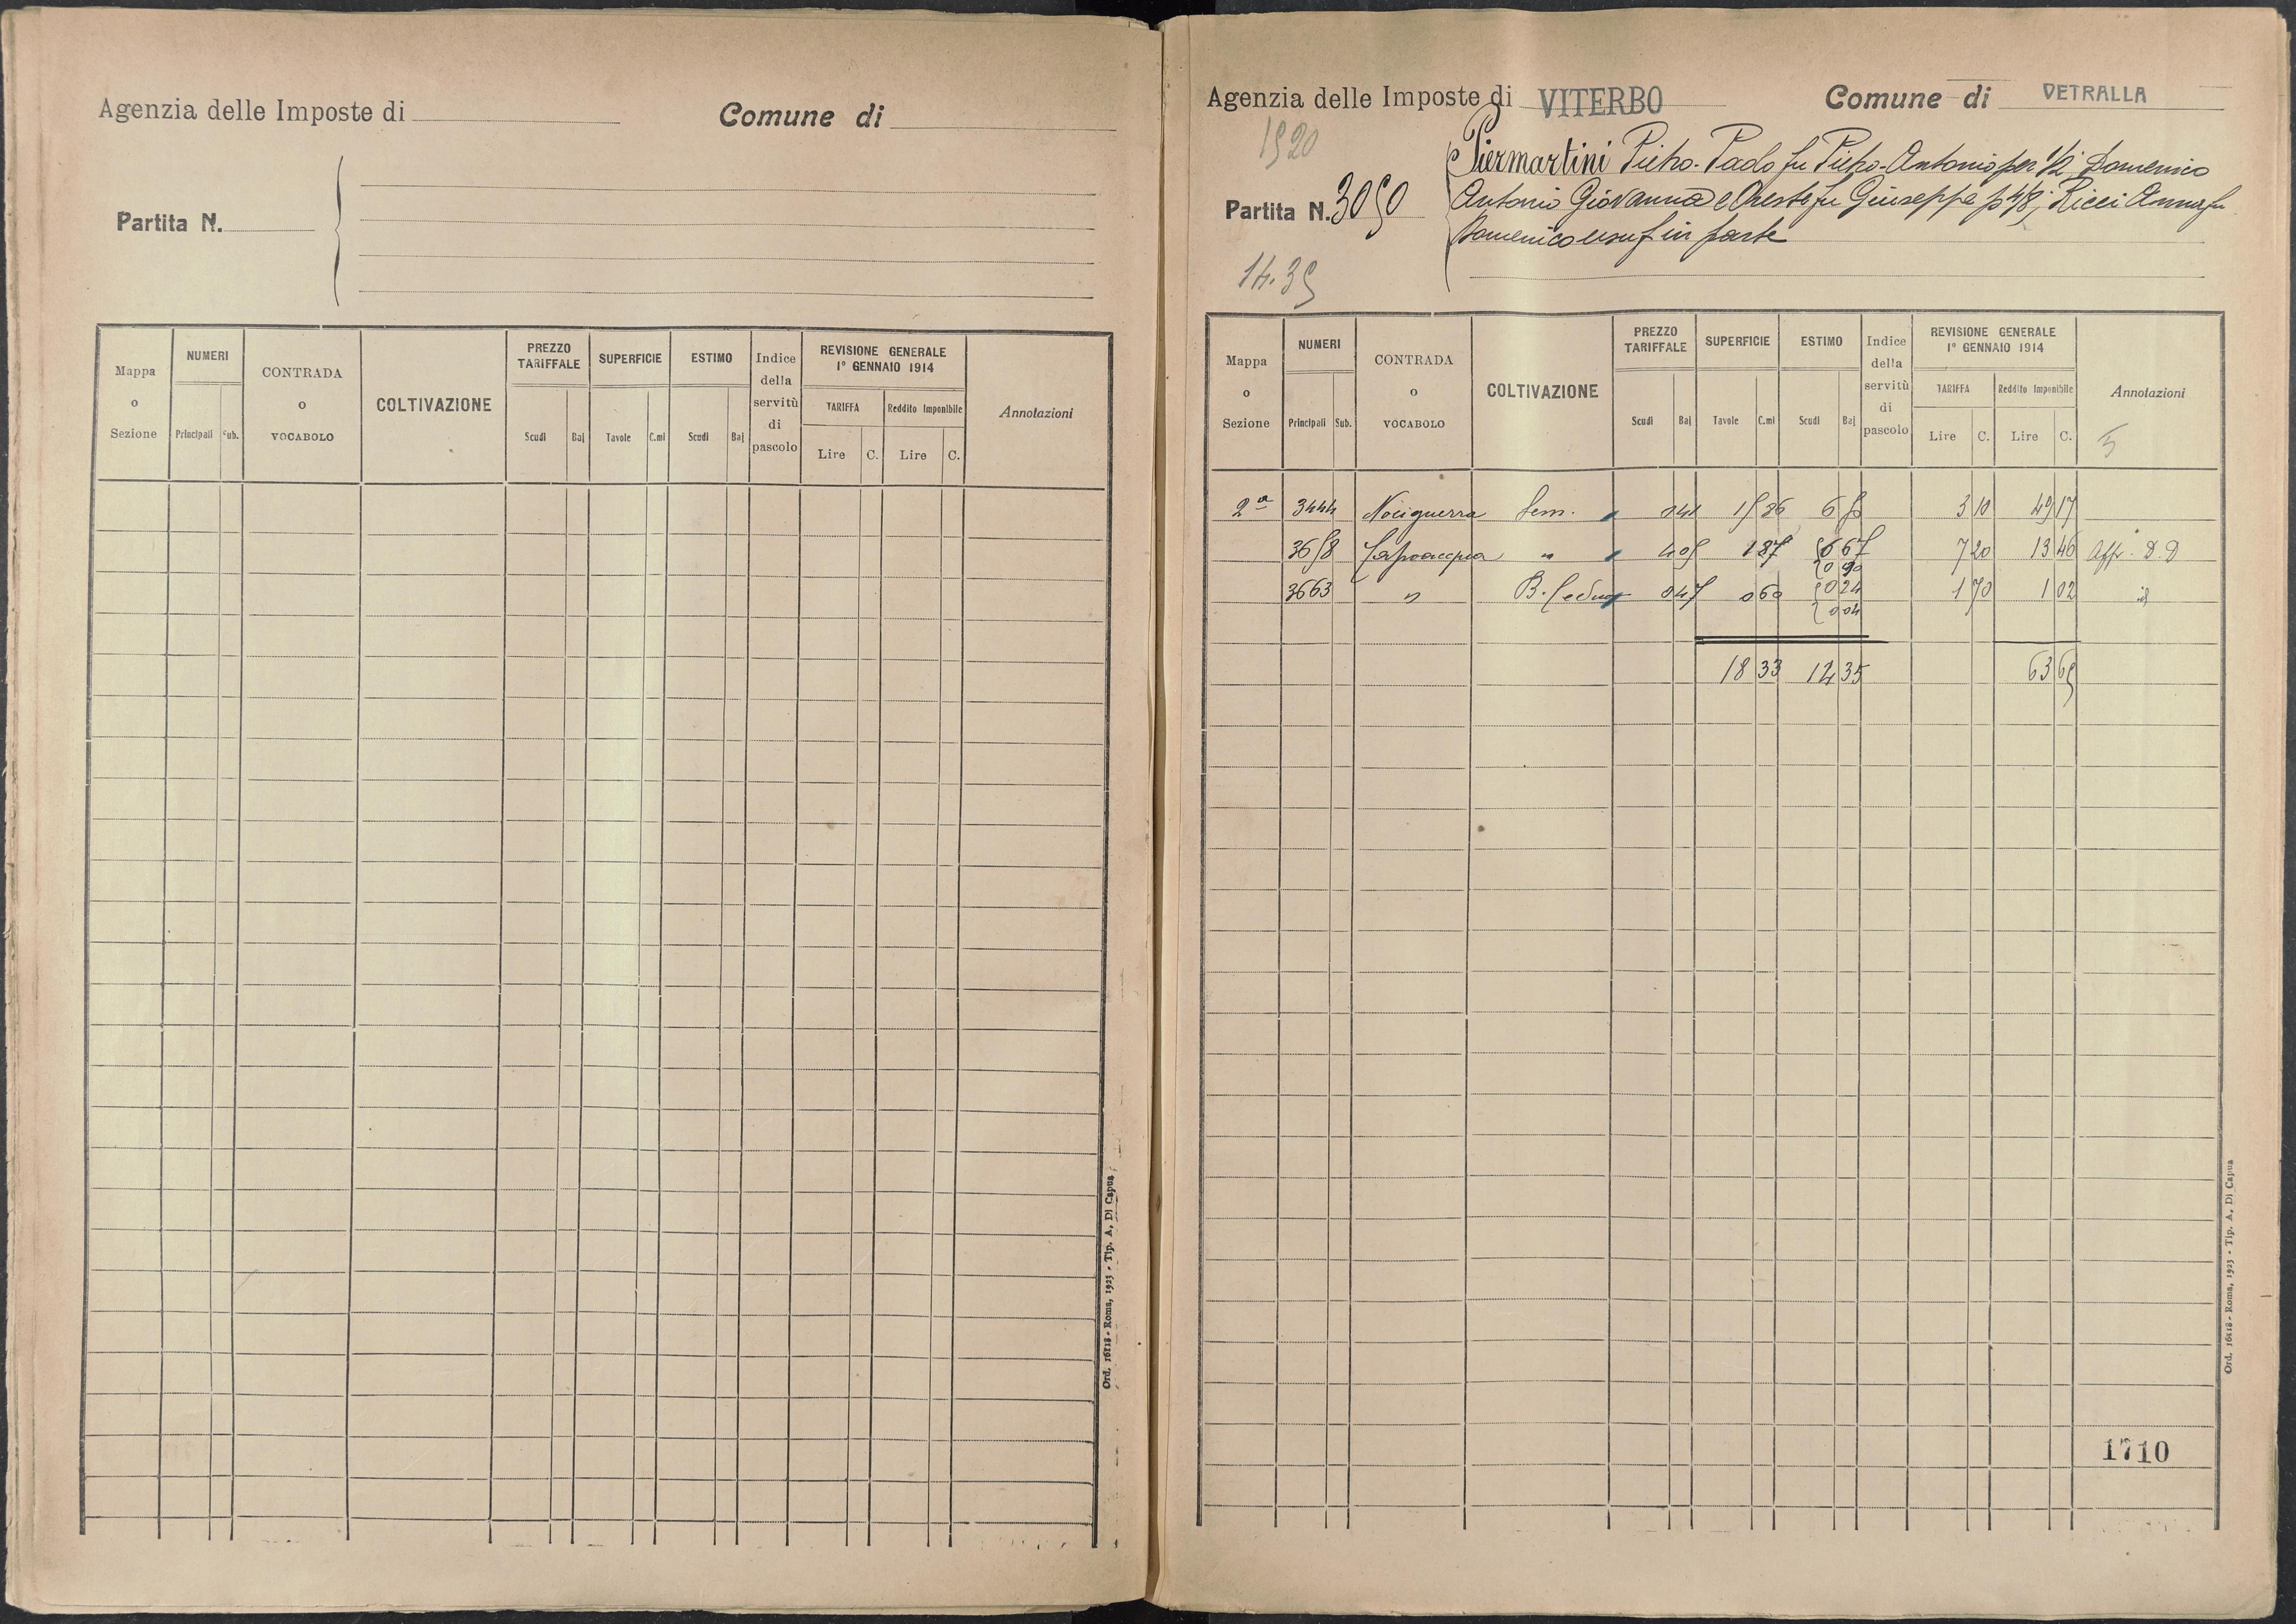 Agenzia delle Imposte di
Comune di
Partita N.
Mappa o Sezione
NUMERI
Principali Sub.
CONTRADA o VOCABOLO
COLTIVAZIONE
PREZZO TARIFFALE
Scudi Baj
SUPERFICIE
Tavole C.mi
ESTIMO
Scudi Baj
Indice della servitù di pascolo
REVISIONE GENERALE
1° GENNAIO 1914
TARIFFA
Lire C.
Reddito Imponibile
Lire C.
Annotazioni
Ord. 16118 - Roma, 1923 - Tip. A. Di Capua
Agenzia delle Imposte di VITERBO
Comune di VETRALLA
1920
Partita N. 3050
14.35
Piermartini Pietro-Paolo fu Pietro-Antonio per 1/2; Domenico
Antonio Giovanna e Oreste fu Giuseppe p 4/8; Ricci Anna fu
Domenico usuf in parte
Mappa o Sezione
NUMERI
Principali Sub.
CONTRADA o VOCABOLO
COLTIVAZIONE
PREZZO TARIFFALE
Scudi Baj
SUPERFICIE
Tavole C.mi
ESTIMO
Scudi Baj
Indice della servitù di pascolo
REVISIONE GENERALE
1° GENNAIO 1914
TARIFFA
Lire C.
Reddito Imponibile
Lire C.
Annotazioni
2a 3444 Nociguerra Sem. 0 41 15 86 6 50 3 10 49 17
3658 Capoacqua " 4 05 1 87 6 67 7 20 13 46 Aff. D. D
0 90
3663 " B. Ceduo 0 47 0 60 0 24 1 70 1 02 id
0 04
18 33 14 35 63 65
1710
Ord. 16118 - Roma, 1923 - Tip. A. Di Capua